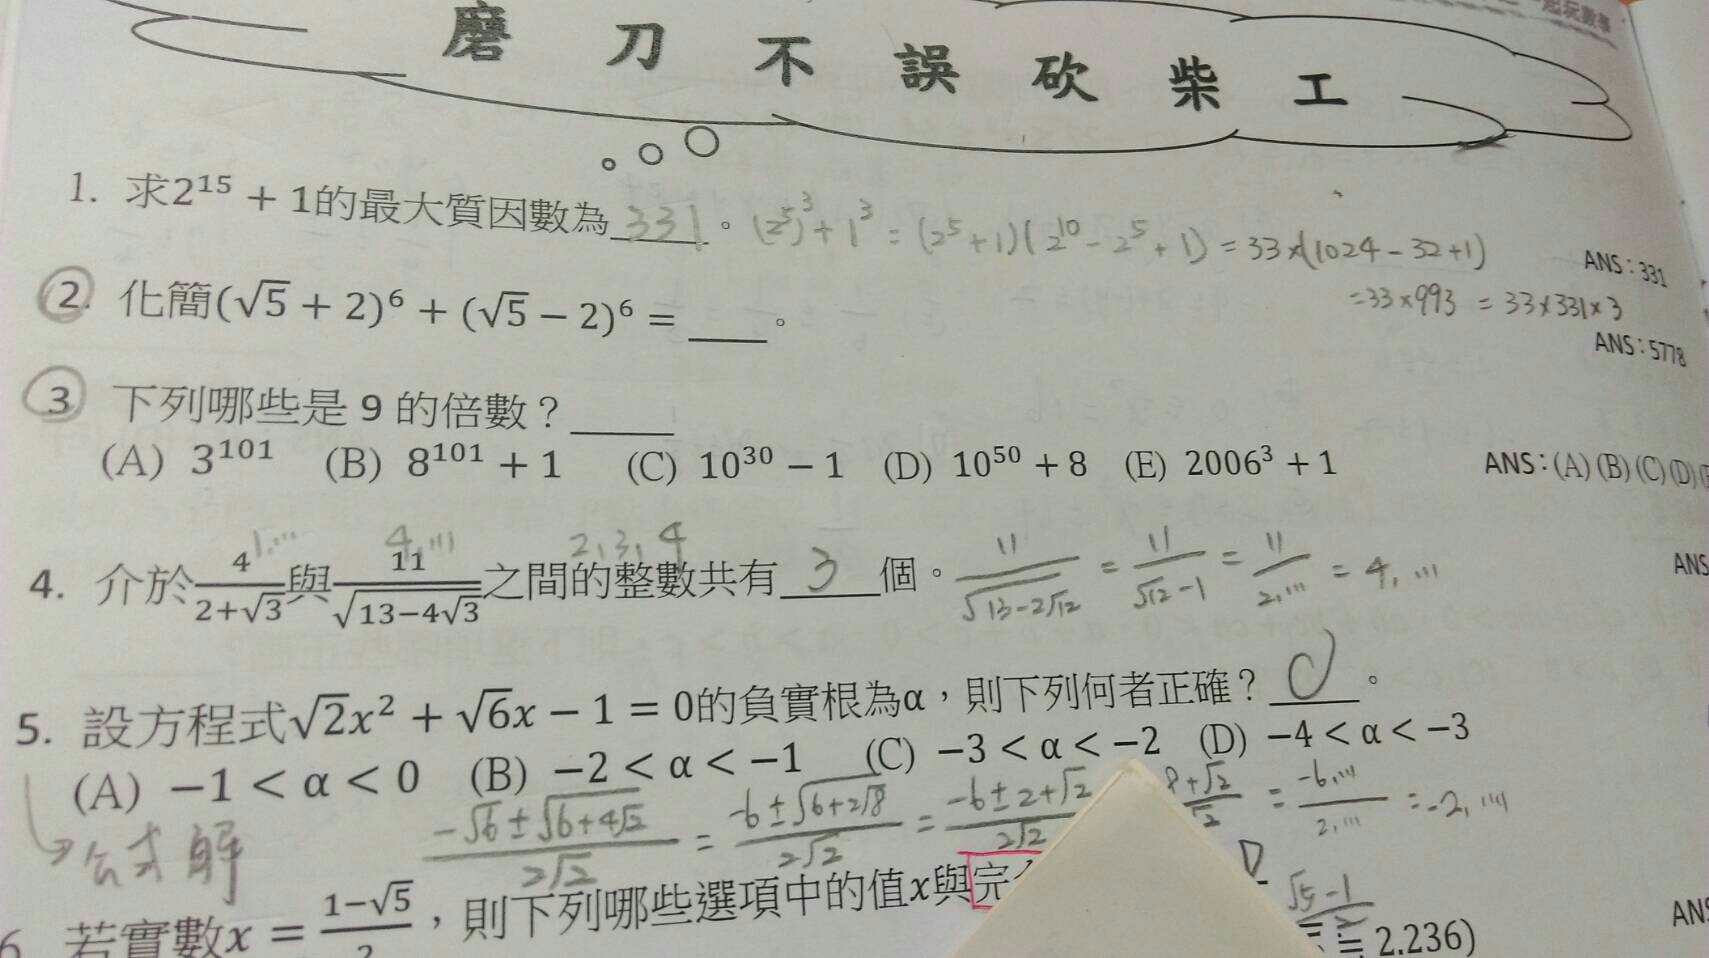 起玩數學
磨刀不誤砍柴工
1. 求2¹⁵ + 1的最大質因數為 331 。 (2⁵)³ + 1³ = (2⁵+1)(2¹⁰ - 2⁵ + 1) = 33×(1024 - 32 + 1)
ANS：331
= 33×993 = 33×331×3
2. 化簡(√5 + 2)⁶ + (√5 − 2)⁶ = ____ 。
ANS：5778
3. 下列哪些是 9 的倍數？____
(A) 3¹⁰¹ (B) 8¹⁰¹ + 1 (C) 10³⁰ − 1 (D) 10⁵⁰ + 8 (E) 2006³ + 1 ANS：(A)(B)(C)(D)
1,... 4,... 2,3,4
4. 介於 4/(2+√3) 與 11/√(13−4√3) 之間的整數共有 3 個。 11/√(13-2√12) = 11/(√12-1) = 11/2,... = 4,...
ANS
5. 設方程式√2x² + √6x − 1 = 0的負實根為α，則下列何者正確？ C 。
(A) −1 < α < 0 (B) −2 < α < −1 (C) −3 < α < −2 (D) −4 < α < −3
公式解 (-√6±√(6+4√2))/2√2 = (-6±√(6+2√8))/2√2 = (-6±2+√2)/2√2 = -6,.../2,... = -2,...
6 若實數x = (1−√5)/2，則下列哪些選項中的值x與完
D √5-1
≒ 2.236)
ANS